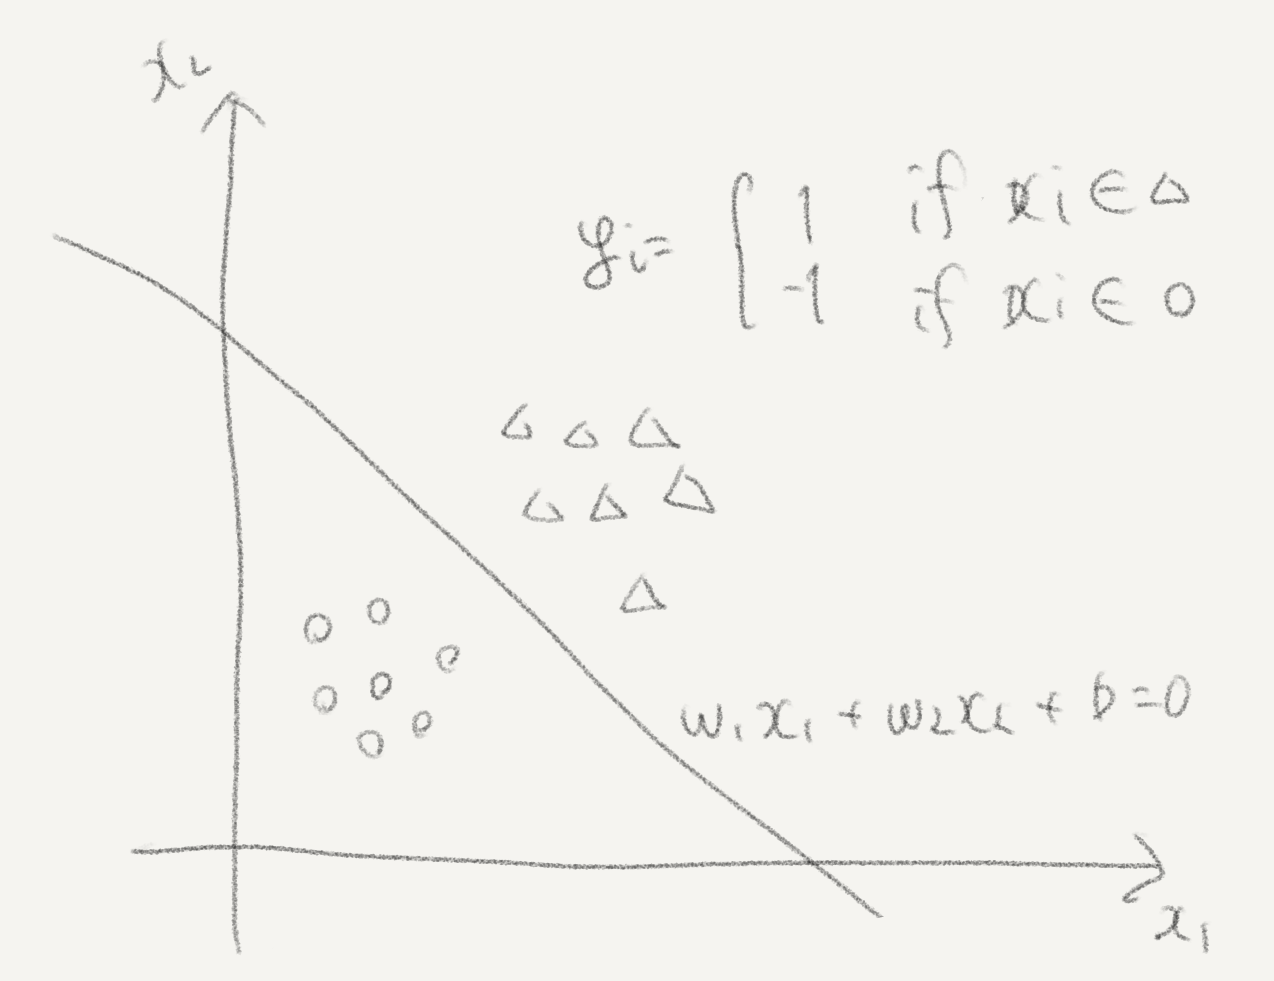 x₂
yᵢ = { 1 if xᵢ ∈ △
-1 if xᵢ ∈ O
w₁x₁ + w₂x₂ + b = 0
x₁